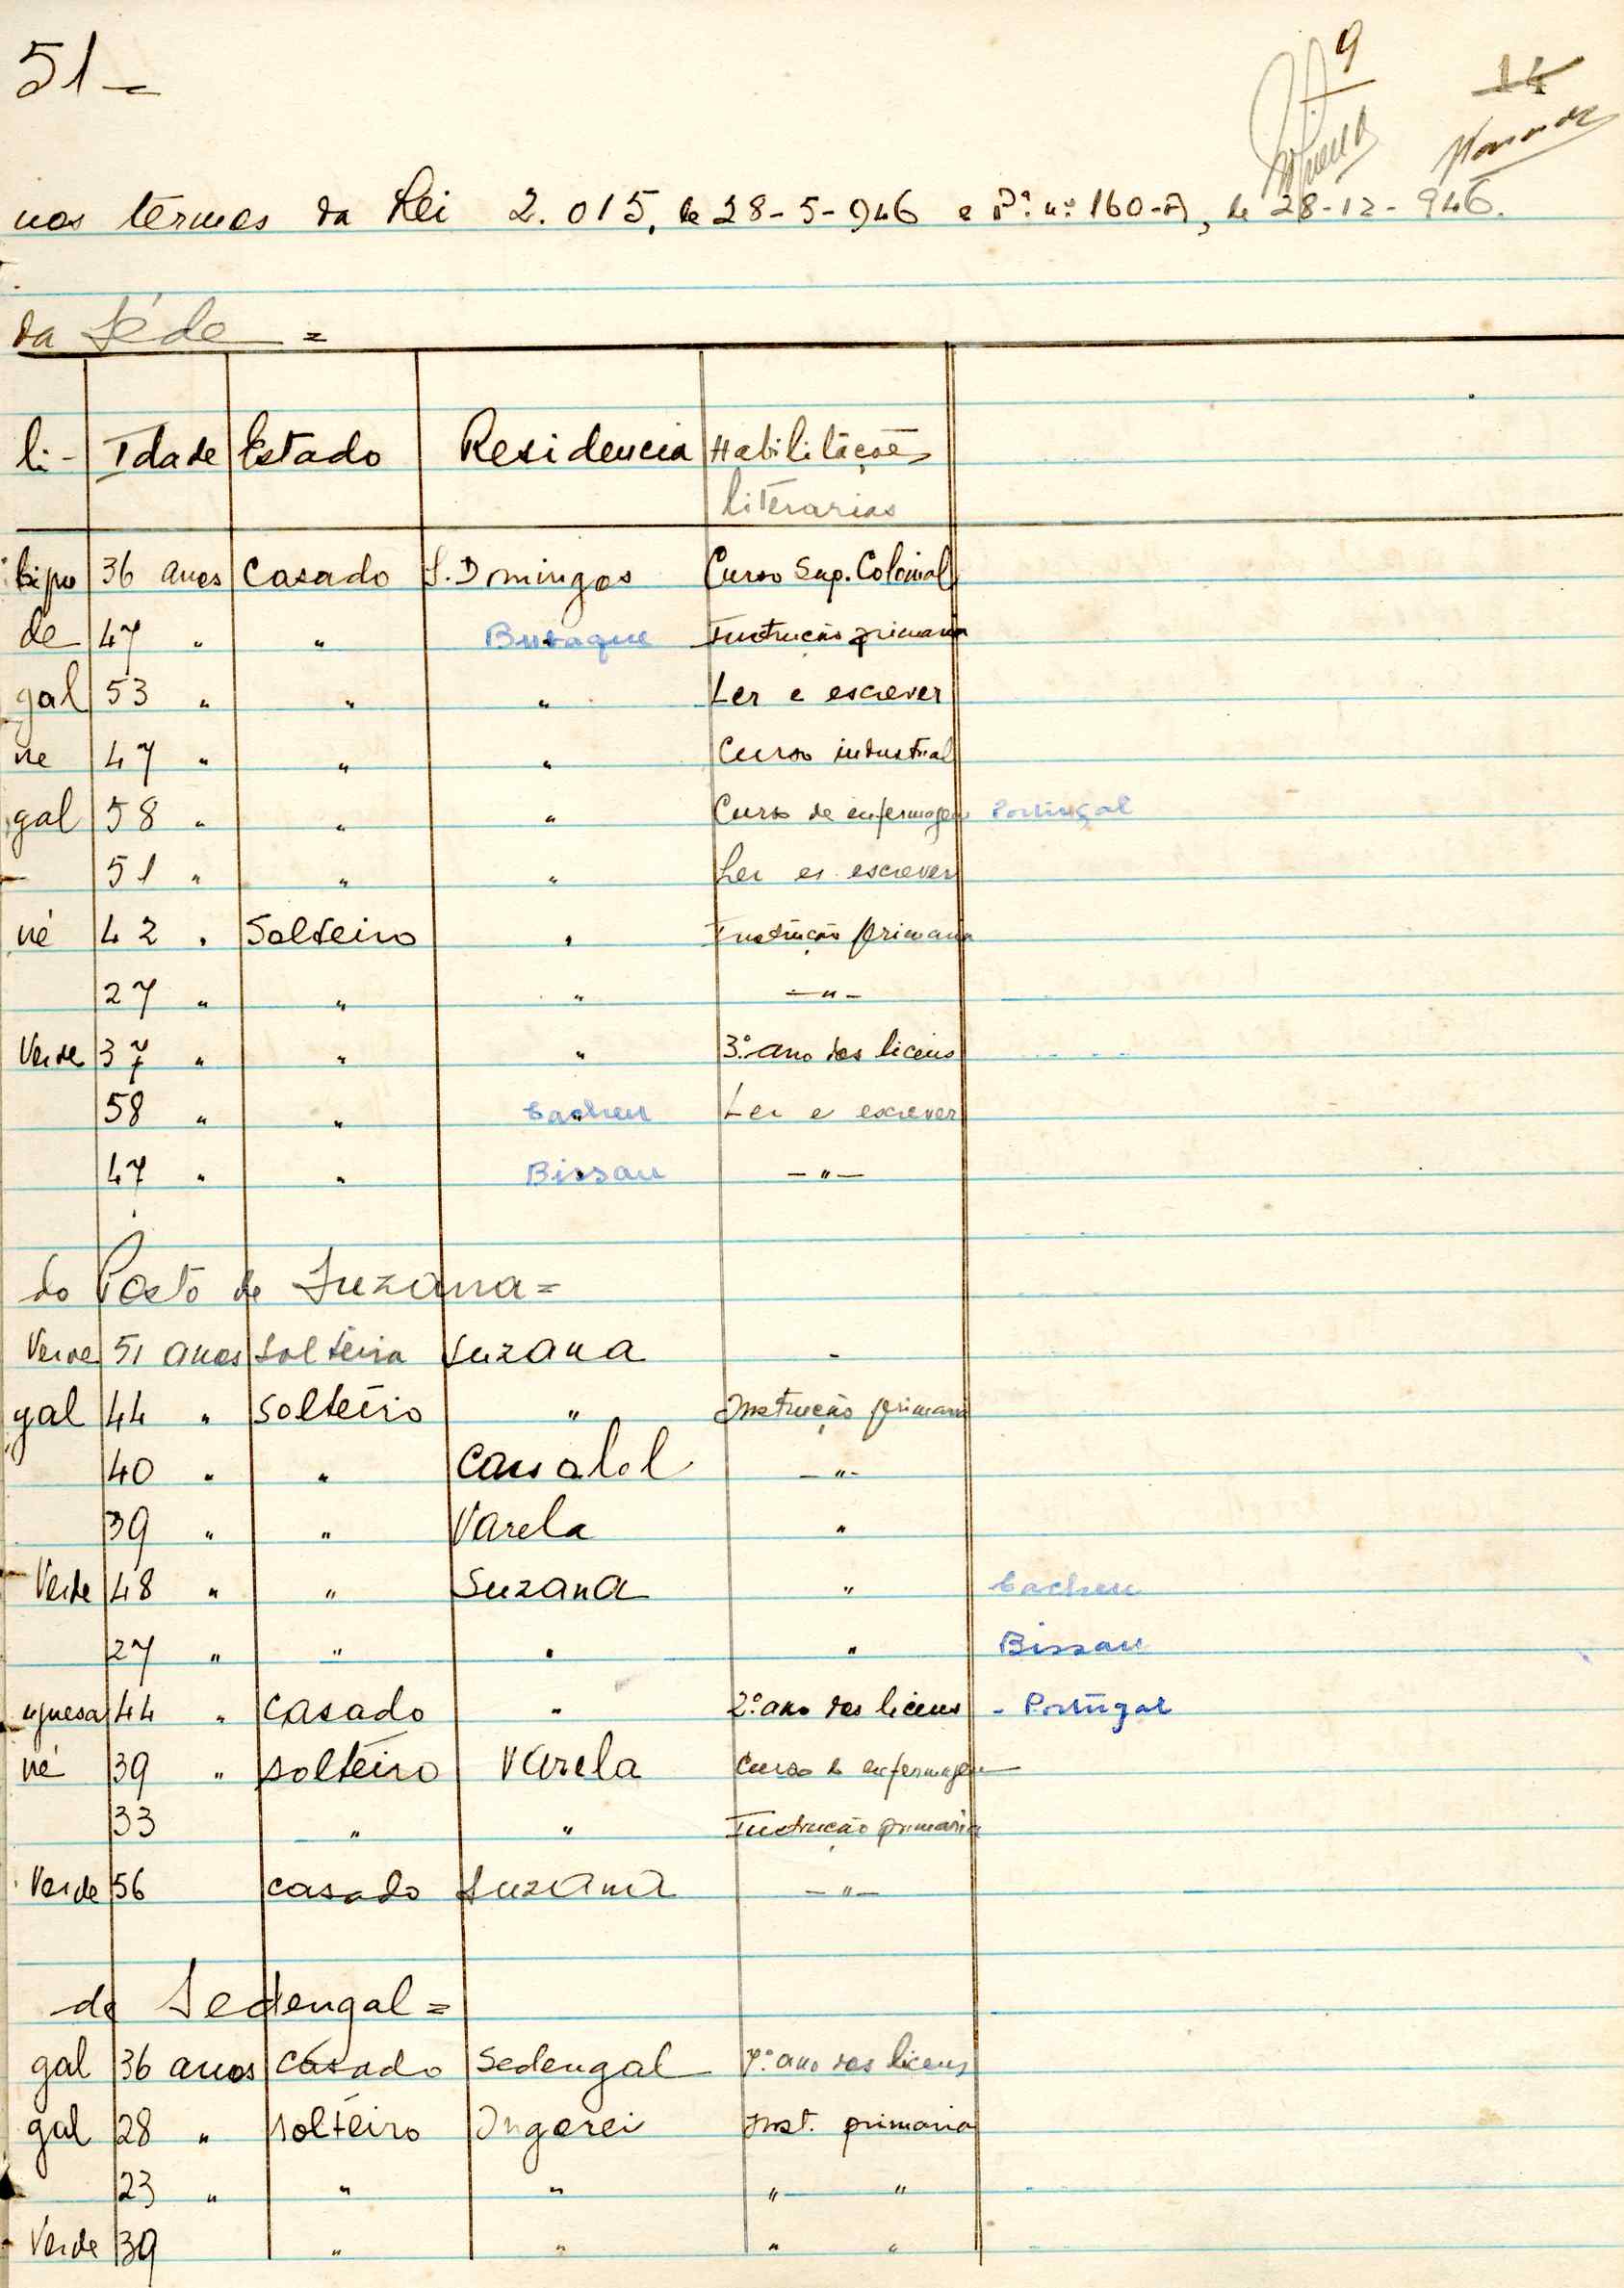 51=
9
14
nos têrmos da Lei 2.015, de 28-5-946 e P.ª n.º 160-A, de 28-12-946.
da Séde =
li- Idade Estado Residencia Habilitações
literarias
36 anos Casado S. Domingos Curso Sup. Colonial
de 47 " " Bubaque Instrução primaria
gal 53 " " " Ler e escrever
ne 47 " " " Curso industrial
gal 58 " " " Curso de enfermagem Portugal
51 " " " Ler e escrever
né 42 " Solteiro " Instrução primaria
27 " " " -"-
Verde 37 " " " 3.º ano dos liceus
58 " " Cacheu Ler e escrever
47 " " Bissau -"-
do Posto de Suzana=
Verde 51 anos Solteira Suzana -
gal 44 " Solteiro " Instrução primaria
40 " " Cassalol -"-
39 " " Varela "
Verde 48 " " Suzana " Cacheu
27 " " " " Bissau
uguesa 44 " Casado " 2.º ano dos liceus - Portugal
né 39 " solteiro Varela Curso de enfermagem
33 " " Instrução primaria
Verde 56 casado Suzana -"-
de Sedengal=
gal 36 anos Casado Sedengal 7.º ano dos liceus
gal 28 " solteiro Ingorei Inst. primaria
23 " " " " "
Verde 39 " " " "